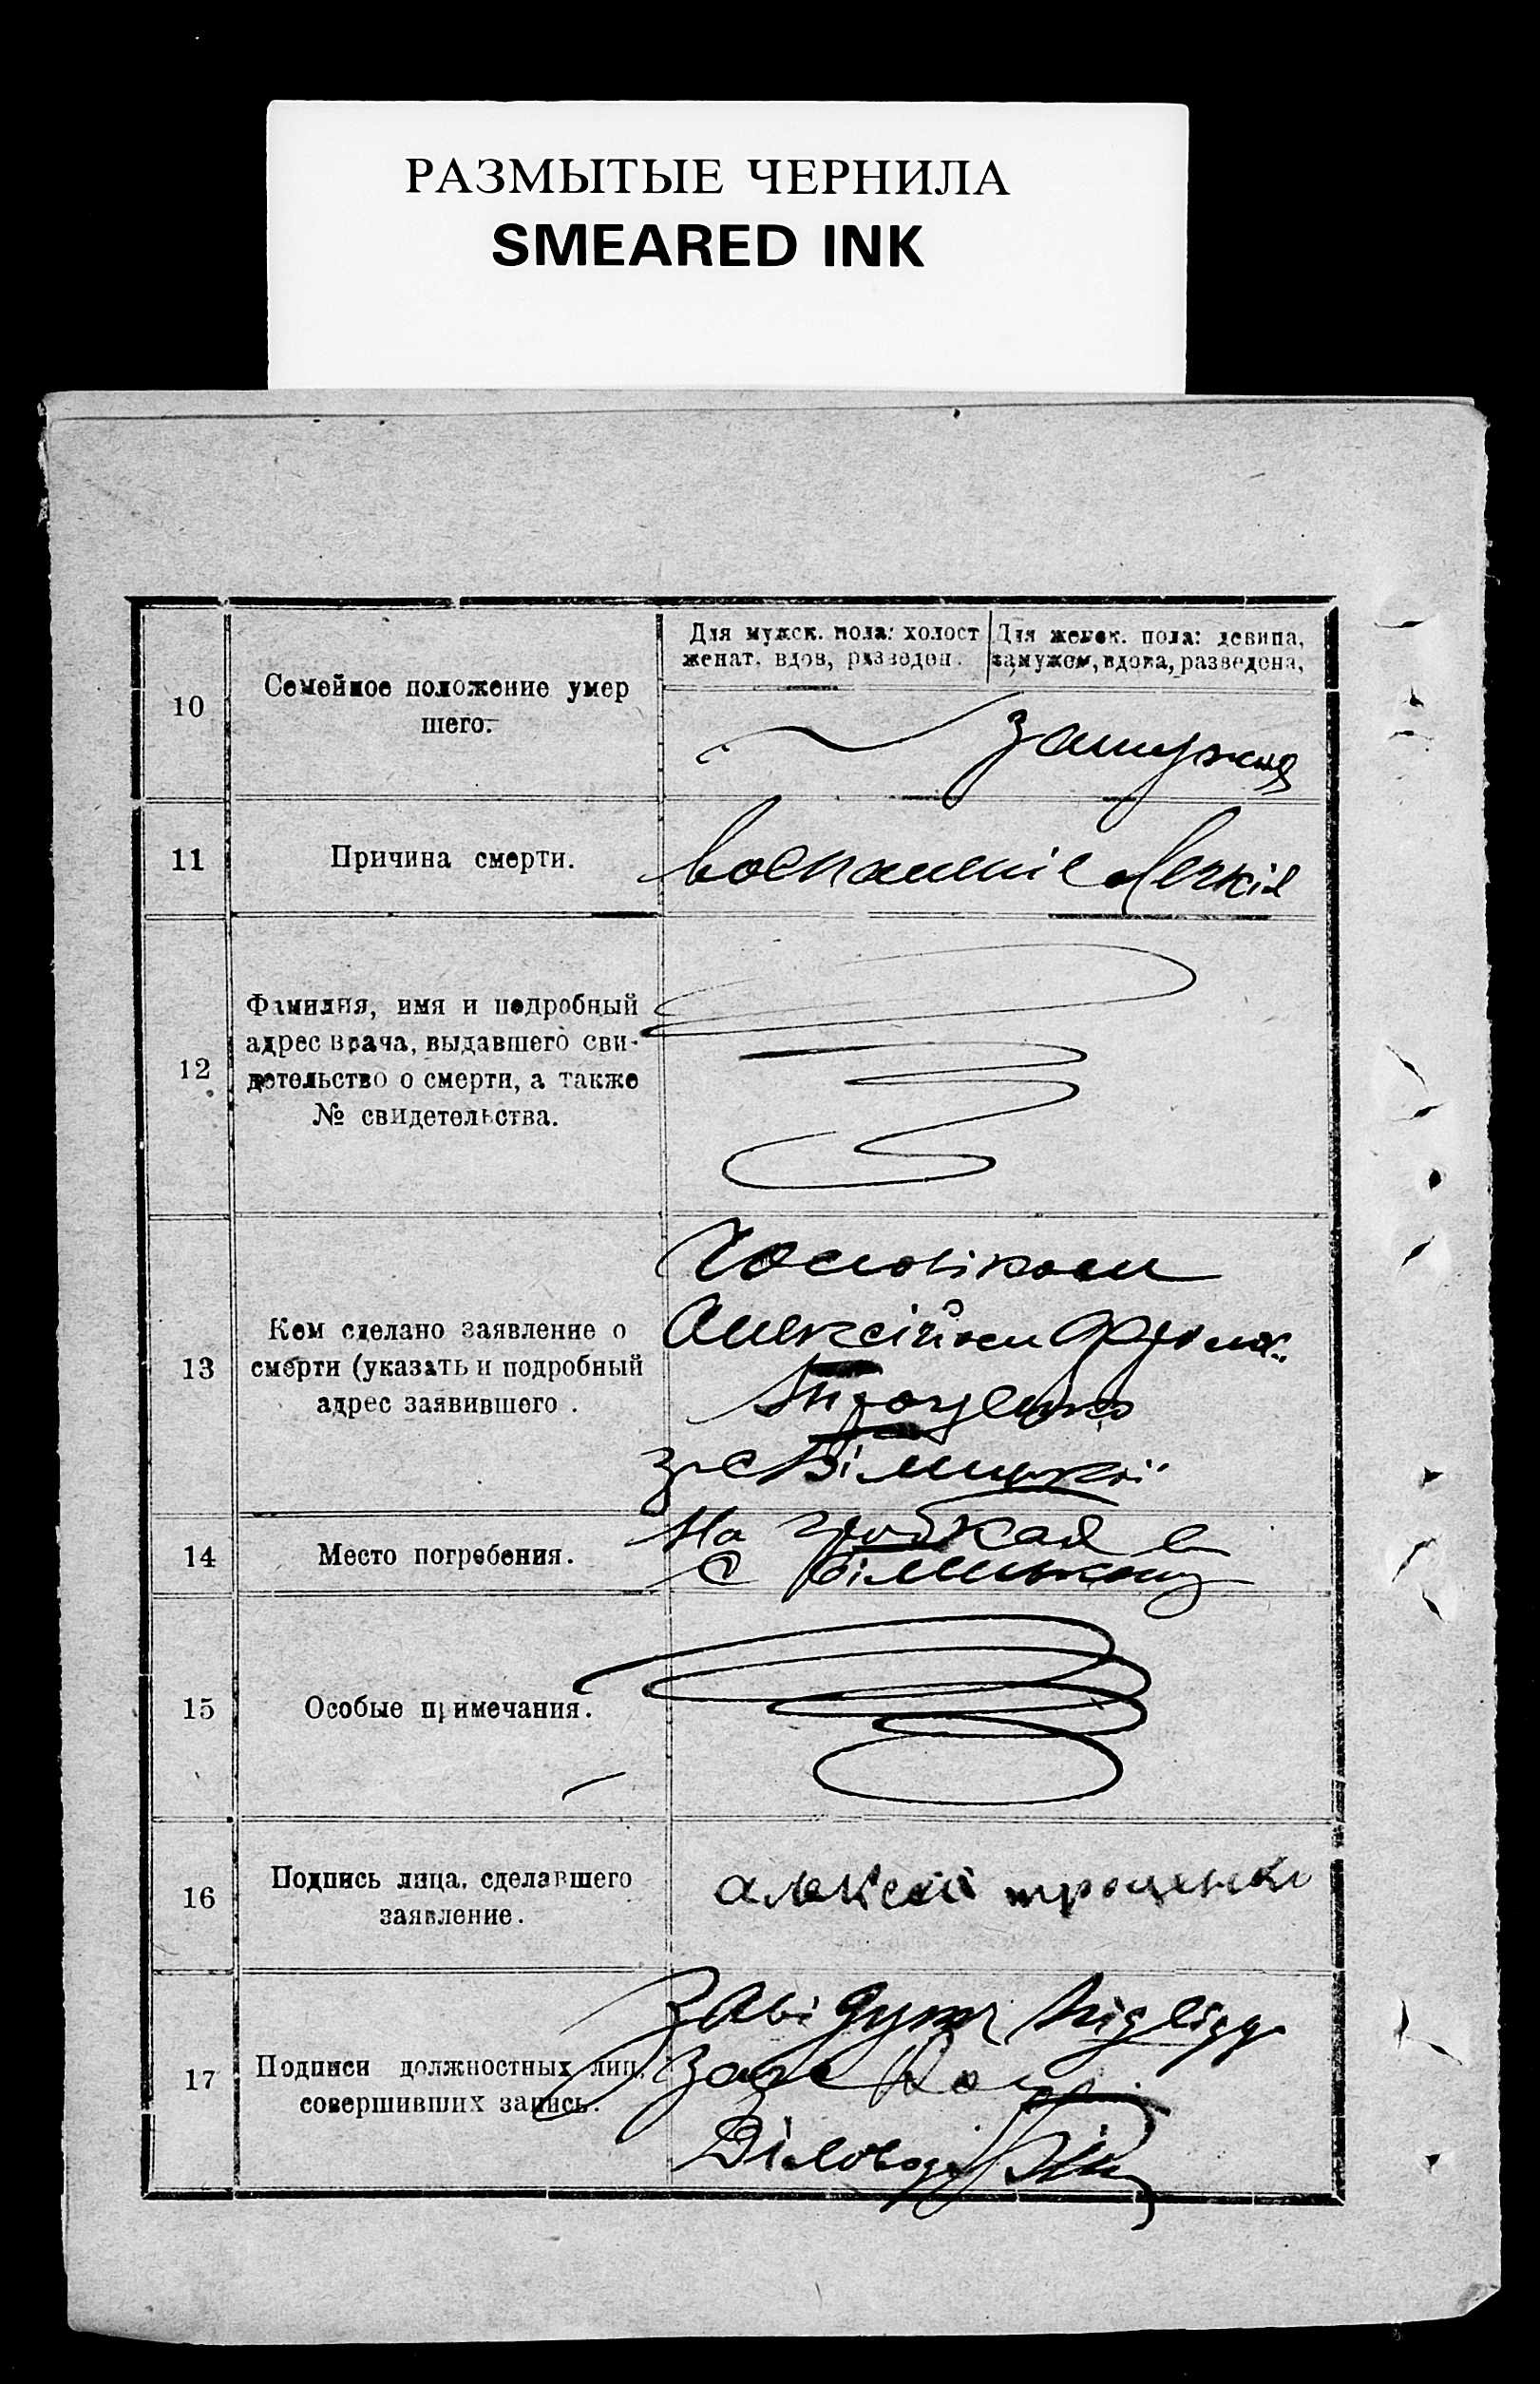 РАЗМЫТЫЕ ЧЕРНИЛА
SMEARED INK
10
Семейное положение умер
шего.
Для мужск. пола: холост
женат. вдов, разведен.
Для женск. пола: девица,
замужем, вдова, разведена,
замужня
11
Причина смерти.
воспаленіе легкіх
12
Фамилия, имя и подробный
адрес врача, выдавшего сви-
детельство о смерти, а также
№ свидетельства.
13
Кем сделано заявление о
смерти (указать и подробный
адрес заявившего .
Чоловіком
Алексійом
Троценко
з с
14
Место погребения.
На
с
15
Особые примечания.
16
Подпись лица, сделавшего
заявление.
алексей троценко
17
Подписи должностных лиц,
совершивших запись.
Завідуюч підвідд
Загс
Діловод